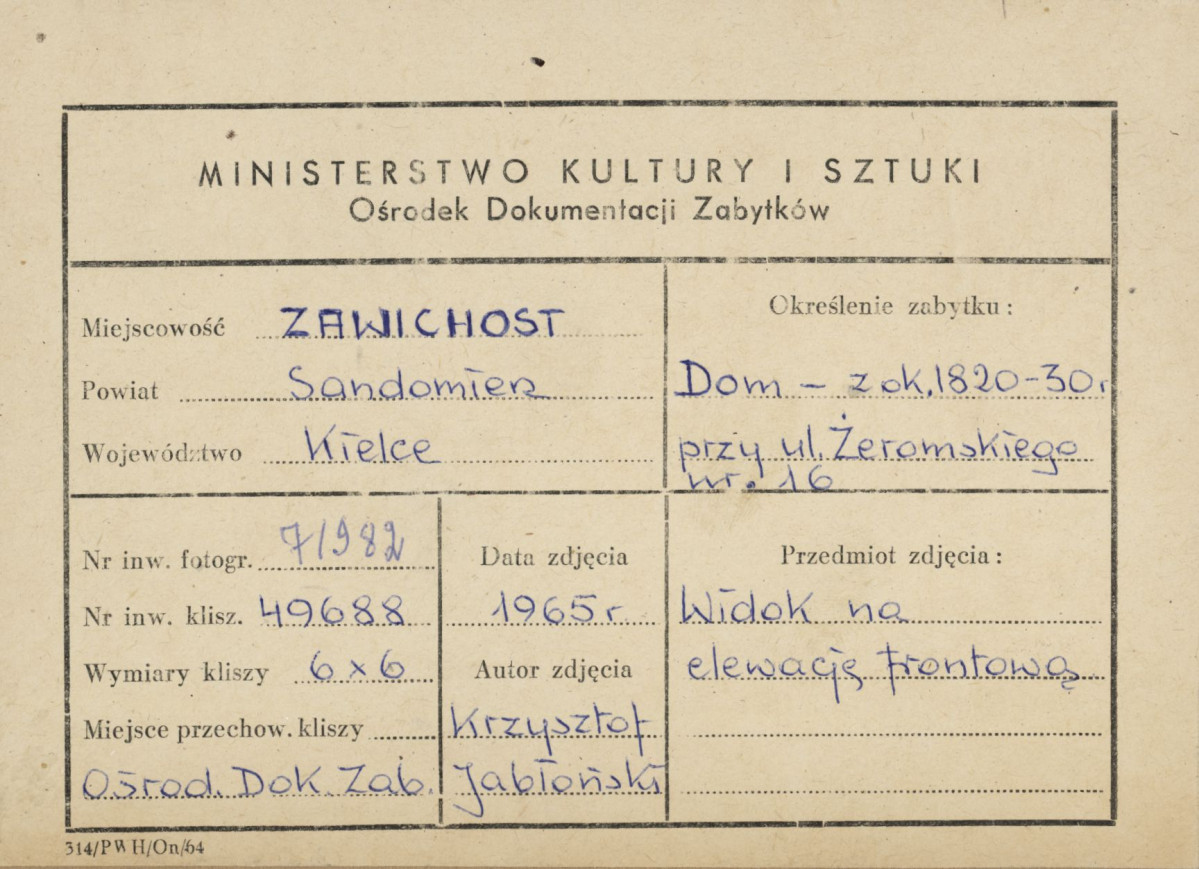 MINISTERSTWO KULTURY I SZTUKI
Ośrodek Dokumentacji Zabytków
Miejscowość ZAWICHOST
Powiat Sandomierz
Województwo Kielce
Określenie zabytku:
Dom – z ok. 1820-30 r
przy ul. Żeromskiego
nr. 16
Nr inw. fotogr. 71982
Nr inw. klisz. 49688
Wymiary kliszy 6 x 6
Miejsce przechow. kliszy
Ośrod. Dok. Zab.
Data zdjęcia
1965 r.
Autor zdjęcia
Krzysztof
Jabłoński
Przedmiot zdjęcia:
Widok na
elewację frontową
314/PWH/On/64